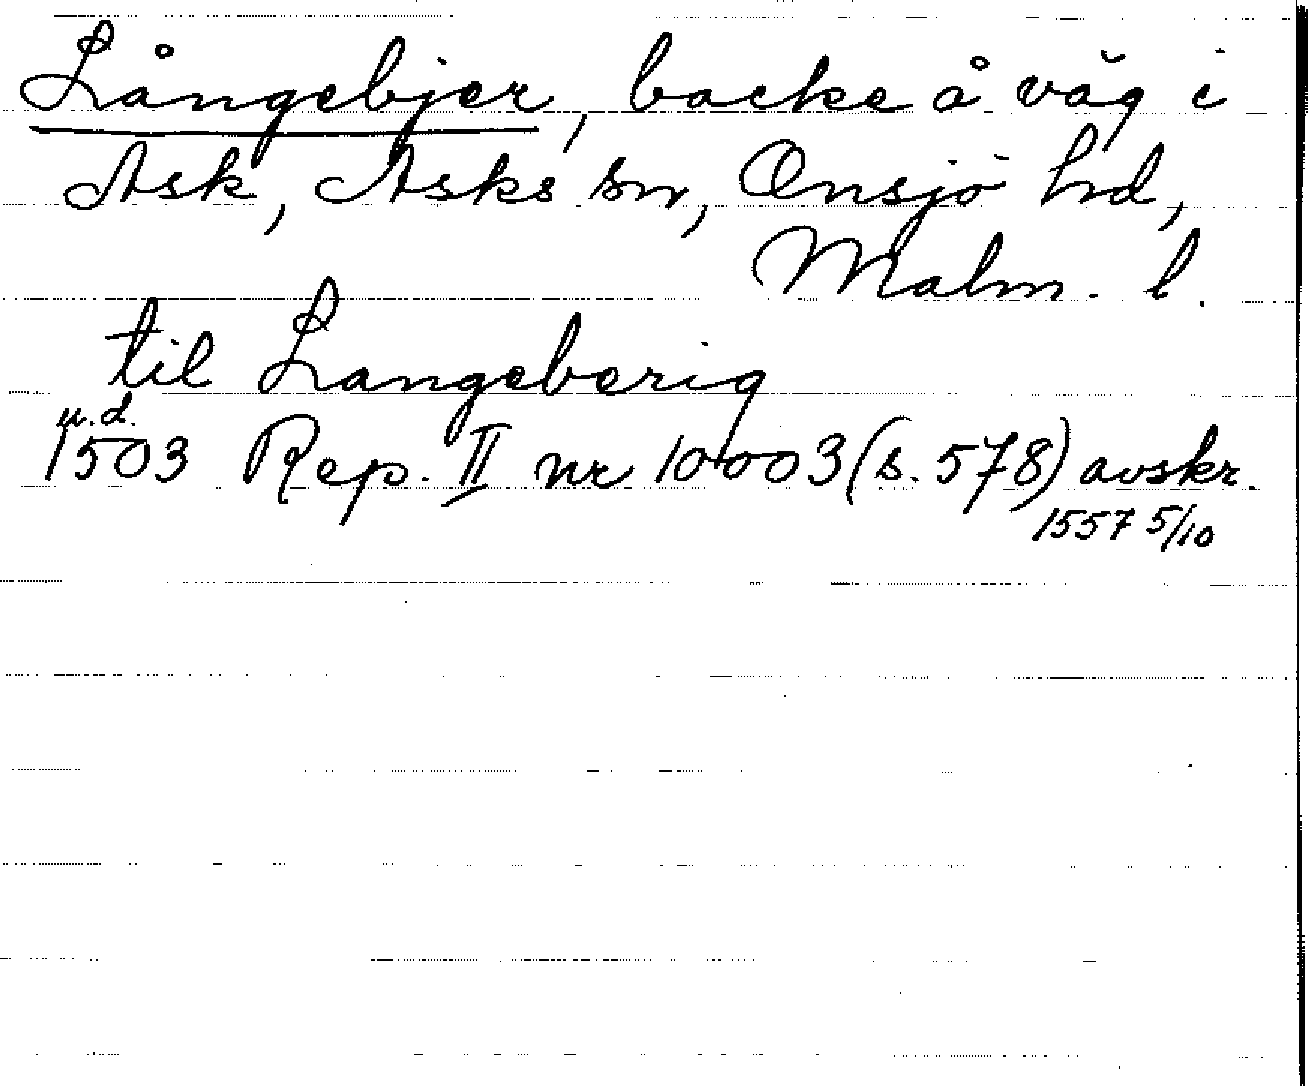 Långebjer, backe å väg i
Ask, Asks sn, Onsjö hd,
Malm. l.
til Langeberig
u.d.
1503 Rep. II nr 10003 (s. 578) avskr.
1557 5/10